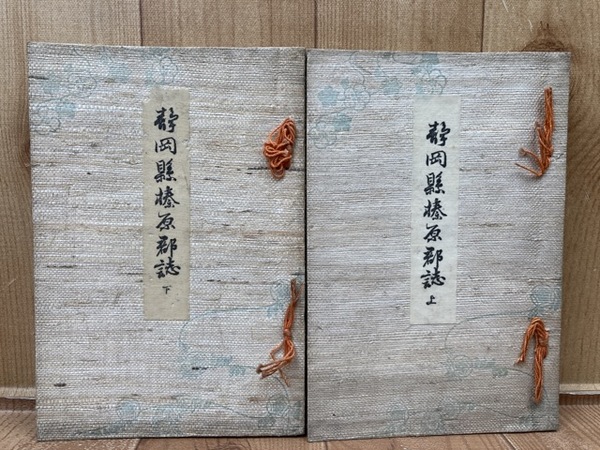 静岡縣榛原郡誌 上
静岡縣榛原郡誌 下